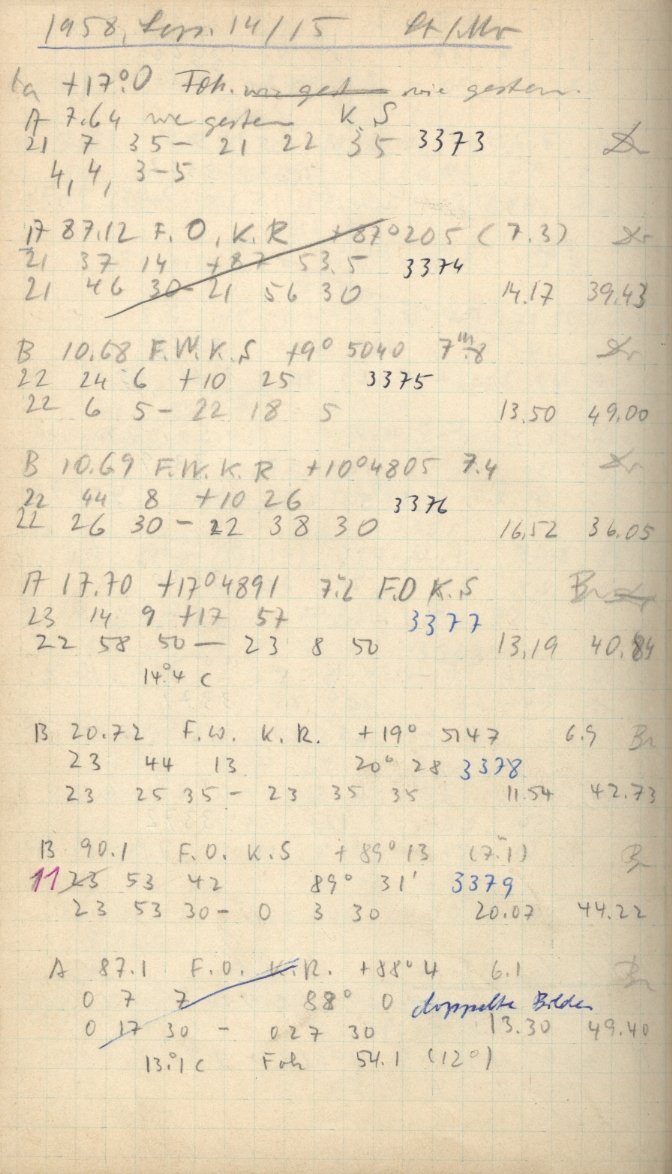 1958, Sep. 14/15 St/Mr
ta +17°.0 Fok. wie gest wie gestern.
A 7.64 wie gestern K.S
21 7 35 – 21 22 35 3373
4, 4, 3-5
A 87.12 F.O. K.R +87°205 (7.3)
21 37 14 +87 53.5 3374
21 46 30 – 21 56 30 14.17 39.43
B 10.68 F.W. K.S +9° 5040 7m.8
22 24 6 +10 25 3375
22 6 5 – 22 18 5 13.50 49.00
B 10.69 F.W. K.R +10°4805 7.4
22 44 8 +10 26 3376
22 26 30 – 22 38 30 16.52 36.05
A 17.70 +17°4891 7.2 F.O K.S Br
23 14 9 +17 57 3377
22 58 50 – 23 8 50 13.19 40.84
14°.4 C
B 20.72 F.W. K.R. +19° 5147 6.9 Br
23 44 13 20° 28 3378
23 25 35 – 23 35 35 11.54 42.73
B 90.1 F.O. K.S +89° 13 (7m.1) Br
11 23 53 42 89° 31' 3379
23 53 30 – 0 3 30 20.07 44.22
A 87.1 F.O. K.R. +88° 4 6.1 Br
0 7 7 88° 0 doppelte Bilder
0 17 30 – 0 27 30 13.30 49.40
13°.1 C Fok 54.1 (12°)